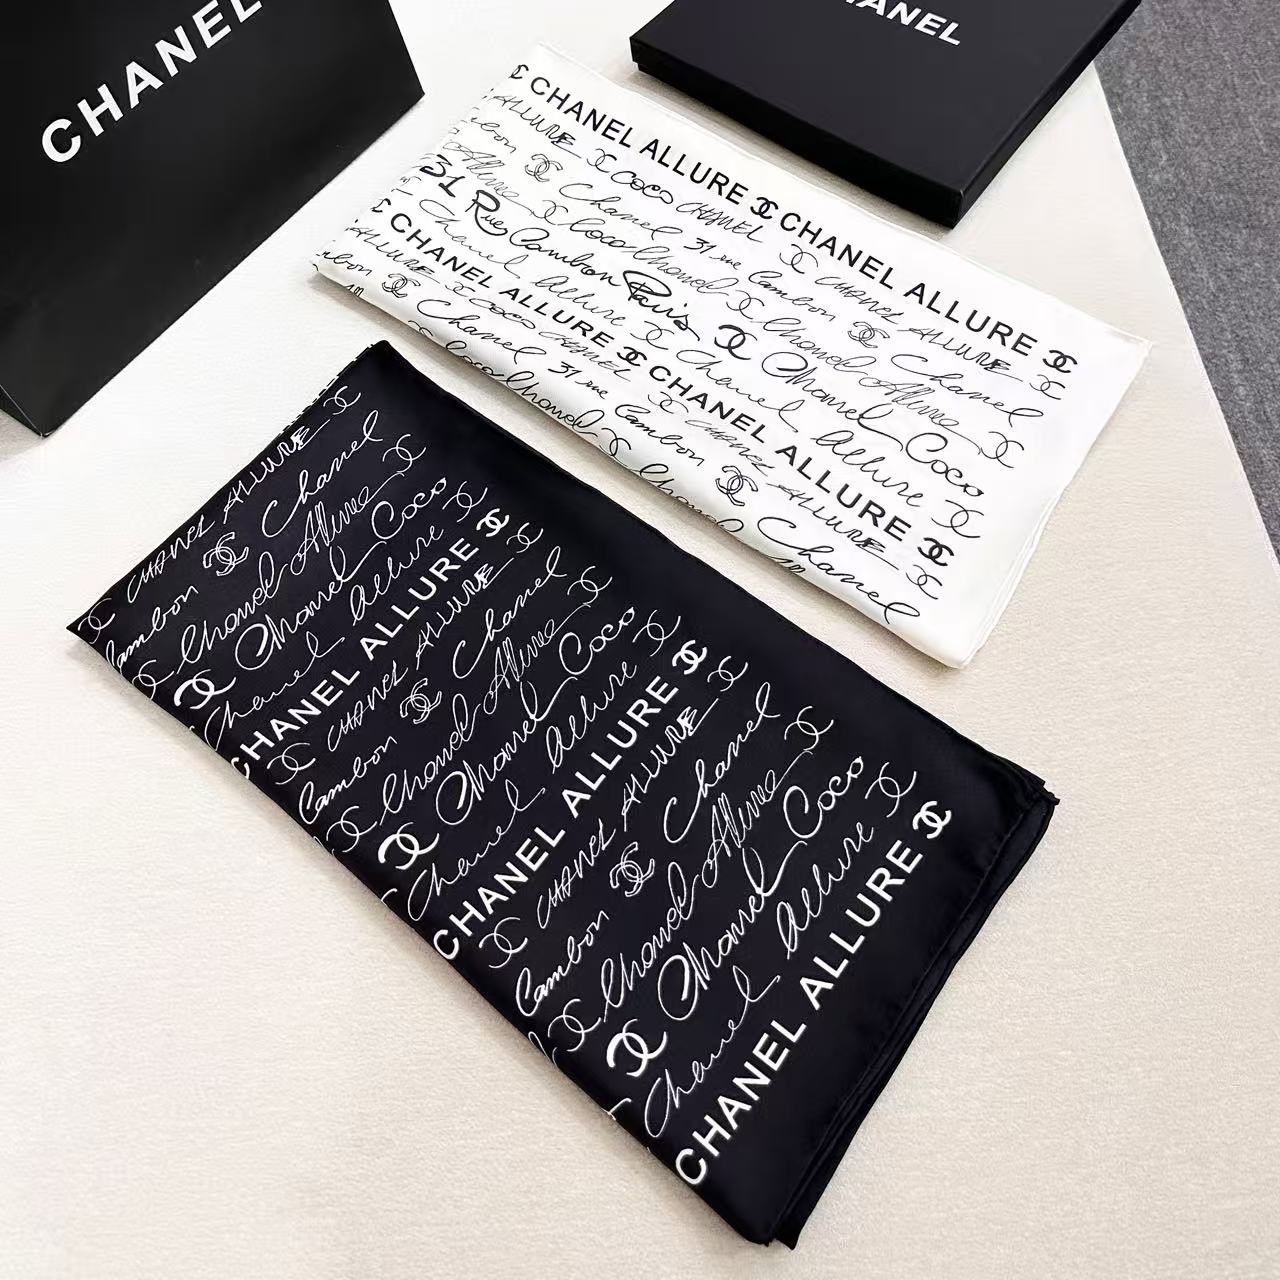 CHANEL
CHANEL
CHANEL ALLURE CHANEL ALLURE
ALLURE COCO CHANEL CHANEL ALLURE
Chanel 31 rue Cambon Chanel
Allure Coco Chanel Chanel Allure
31 Rue Cambon Paris Chanel Coco
Chanel Allure Chanel Allure
CHANEL ALLURE CHANEL ALLURE
COCO CHANEL CHANEL ALLURE
Chanel 31 rue Cambon Chanel
Coco Chanel Chanel
CHANEL ALLURE
Cambon Chanel
Chanel Allure
Chanel Coco
Chanel Allure
CHANEL ALLURE
CHANEL ALLURE
Cambon Chanel
Chanel Allure
Chanel Coco
Chanel Allure
CHANEL ALLURE
CHANEL ALLURE
Cambon Chanel
Chanel Allure
Chanel Coco
Chanel Allure
CHANEL ALLURE